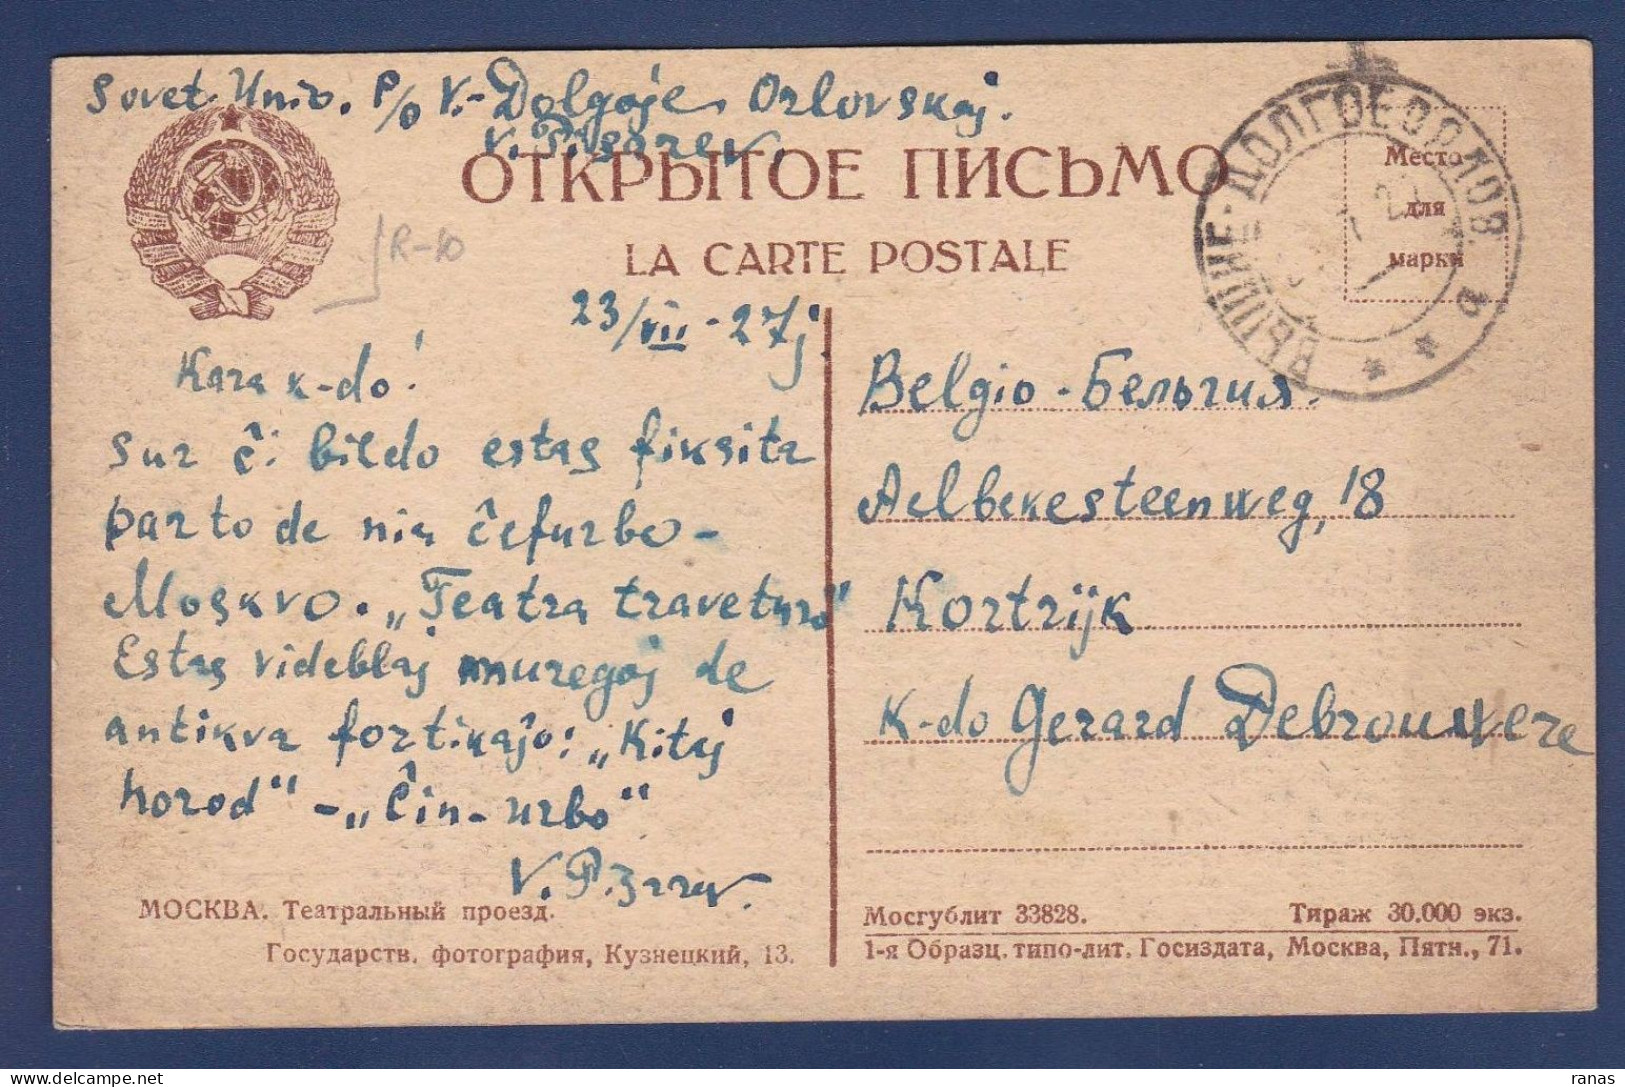 Sovet. Unio. P/o V.-Dolgoje, Orlovskaj.
V. Pisarev.
ОТКРЫТОЕ ПИСЬМО
LA CARTE POSTALE
R-10
ВЫШНЕ-ДОЛГОЕ ОРЛОВ.
Место
для
марки
23/VII - 27j.
Kara k-do!
Sur ĉi bildo estas fiksita
parto de nia ĉefurbo-
Moskvo. „Teatra traveturo“
Estas videblaj muregoj de
antikva fortikaĵo: „Kitaj
horod“ - „Ĉin-urbo“
V. Pisarev.
Belgio - Бельгия.
Aelbekesteenweg, 18
Kortrijk
K-do Gerard Debrouwere
МОСКВА. Театральный проезд.
Государств. фотография, Кузнецкий, 13.
Мосгублит 33828. Тираж 30.000 экз.
1-я Образц. типо-лит. Госиздата, Москва, Пятн., 71.
ranas
delcampe.net